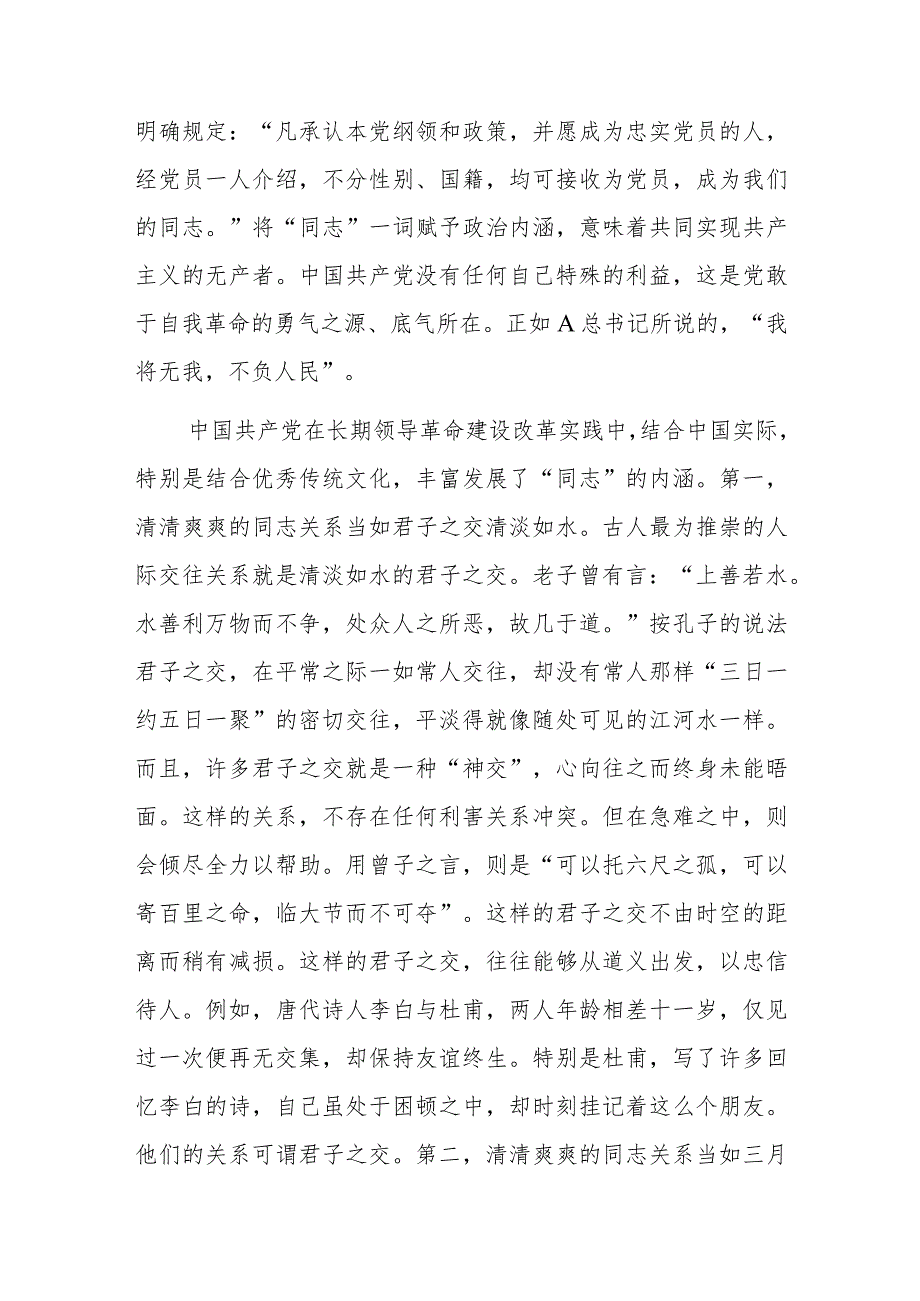 明确规定：“凡承认本党纲领和政策，并愿成为忠实党员的人，
经党员一人介绍，不分性别、国籍，均可接收为党员，成为我们
的同志。”将“同志”一词赋予政治内涵，意味着共同实现共产
主义的无产者。中国共产党没有任何自己特殊的利益，这是党敢
于自我革命的勇气之源、底气所在。正如 A 总书记所说的，“我
将无我，不负人民”。
中国共产党在长期领导革命建设改革实践中，结合中国实际，
特别是结合优秀传统文化，丰富发展了“同志”的内涵。第一，
清清爽爽的同志关系当如君子之交清淡如水。古人最为推崇的人
际交往关系就是清淡如水的君子之交。老子曾有言：“上善若水。
水善利万物而不争，处众人之所恶，故几于道。”按孔子的说法
君子之交，在平常之际一如常人交往，却没有常人那样“三日一
约五日一聚”的密切交往，平淡得就像随处可见的江河水一样。
而且，许多君子之交就是一种“神交”，心向往之而终身未能晤
面。这样的关系，不存在任何利害关系冲突。但在急难之中，则
会倾尽全力以帮助。用曾子之言，则是“可以托六尺之孤，可以
寄百里之命，临大节而不可夺”。这样的君子之交不由时空的距
离而稍有减损。这样的君子之交，往往能够从道义出发，以忠信
待人。例如，唐代诗人李白与杜甫，两人年龄相差十一岁，仅见
过一次便再无交集，却保持友谊终生。特别是杜甫，写了许多回
忆李白的诗，自己虽处于困顿之中，却时刻挂记着这么个朋友。
他们的关系可谓君子之交。第二，清清爽爽的同志关系当如三月